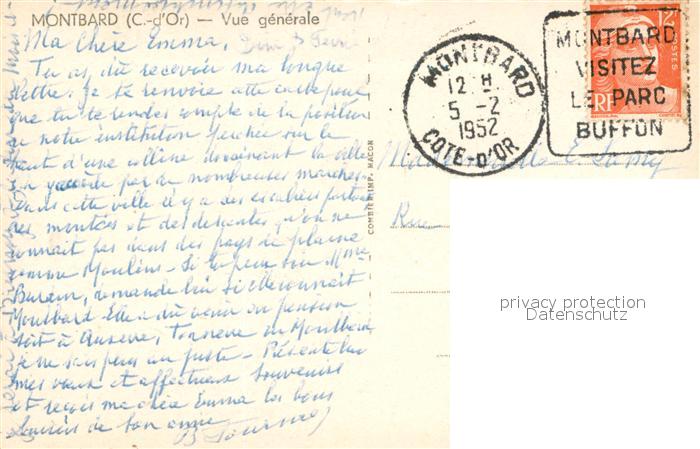 MONTBARD (C.-d'Or) — Vue générale
Ma Chère Emma,
Tu as dû recevoir ma longue
lettre. Je te renvoie cette carte pour
que tu te rendes compte de la position
de notre institution perchée sur le
haut d'une colline dominant la ville
on y accède par de nombreuses marches
dans cette ville il y a des escaliers partout
des montées et des descentes, qu'on ne
connait pas dans des pays de plaine
comme Moulins - Si tu peux voir Mme
demande lui si elle connait
Montbard. Elle a dû venir en pension
soit à Auxerre, Tonnerre ou Montbard,
je ne sais pas au juste - Présente lui
mes vœux et affectueux souvenirs
et reçois ma chère Emma les bons
baisers de ton amie
COMBIER IMP. MACON
MONTBARD
12 H
5 -2
1952
COTE-D'OR
MONTBARD
VISITEZ
LE PARC
BUFFON
12F
POSTES
RF
E.
Rue
privacy protection
Datenschutz